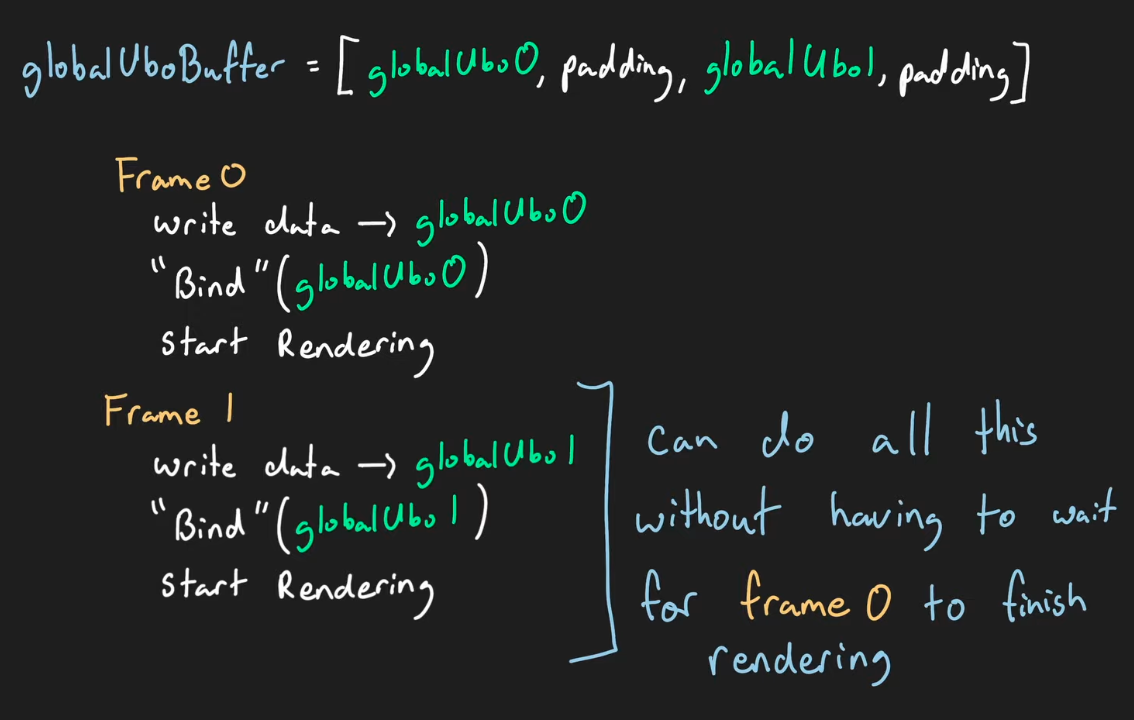 globalUboBuffer = [globalUbo0, padding, globalUbo1, padding]
Frame 0
write data → globalUbo0
"Bind"(globalUbo0)
Start Rendering
Frame 1
write data → globalUbo1
"Bind"(globalUbo1)
Start Rendering
can do all this
without having to wait
for frame 0 to finish
rendering